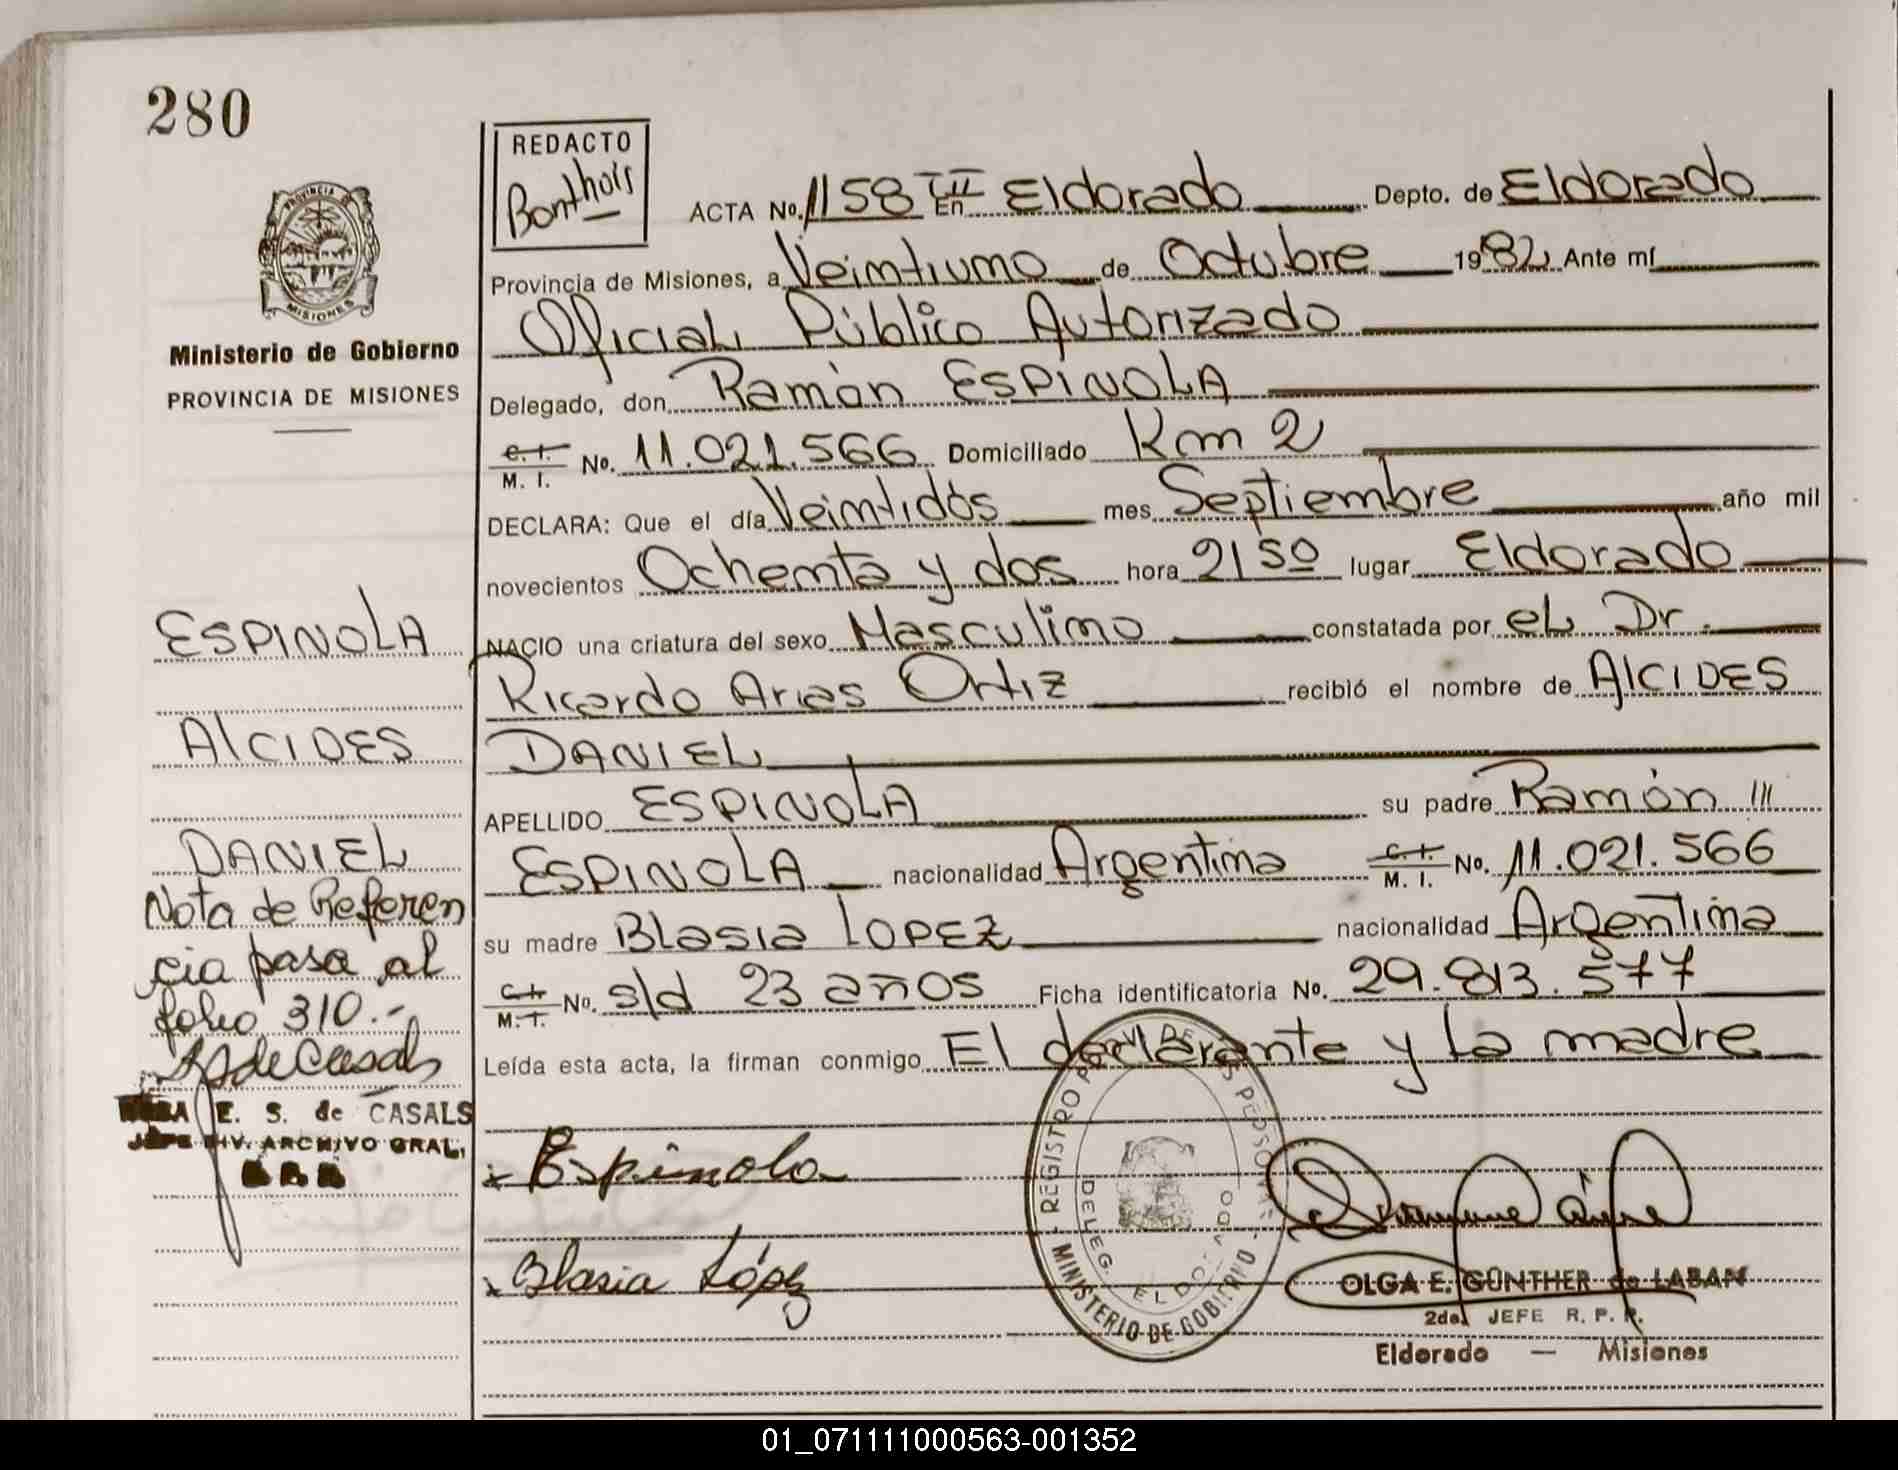 280
REDACTO
Bonthois
ACTA No. 1158 TIII En Eldorado Depto. de Eldorado
Provincia de Misiones, a Veintiuno de Octubre 1982 Ante mí
Oficial Público Autorizado
Delegado, don Ramón ESPINOLA
C. I. M. I. No. 11.021.566 Domiciliado Km 2
DECLARA: Que el día Veintidós mes Septiembre año mil
novecientos Ochenta y dos hora 21 50 lugar Eldorado
NACIO una criatura del sexo Masculino constatada por el Dr.
Ricardo Arias Ortiz recibió el nombre de ALCIDES
DANIEL
APELLIDO ESPINOLA su padre Ramón
ESPINOLA nacionalidad Argentina C. I. M. I. No. 11.021.566
su madre Blasia LOPEZ nacionalidad Argentina
C. I. M. I. No. s/d 23 años Ficha identificatoria No. 29.813.577
Leída esta acta, la firman conmigo El declarante y la madre
x Espinola
x Blasia López
REGISTRO DE PERSONAS
MINISTERIO DE GOBIERNO
DELEG. ELDORADO
OLGA E. GÜNTHER de LABAN
2da. JEFE R. P. R.
Eldorado — Misiones
PROVINCIA
MISIONES
Ministerio de Gobierno
PROVINCIA DE MISIONES
ESPINOLA
ALCIDES
DANIEL
Nota de Referen
cia pasa al
folio 310.-
ROSA E. S. de CASALS
JEFE DIV. ARCHIVO GRAL.
01_071111000563-001352